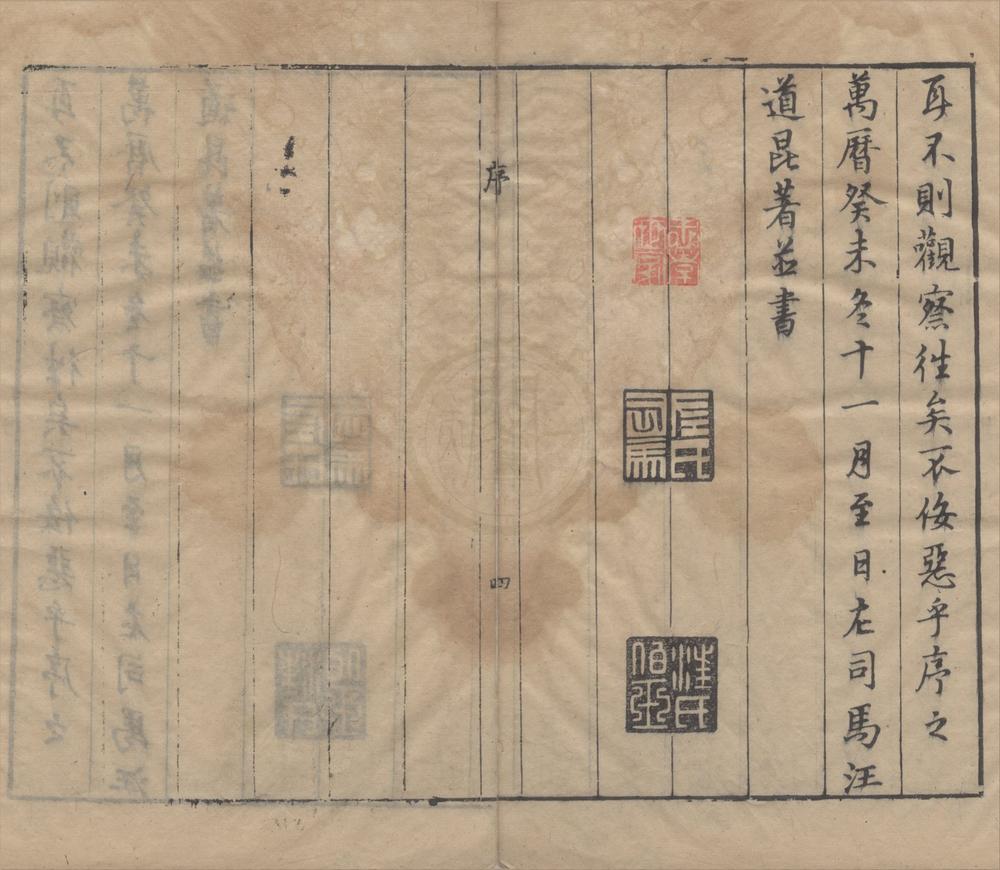 耳不則觀察徃矣不佞惡乎序之
萬曆癸未冬十一月至日左司馬汪
道昆著並書
司馬
汪氏
伯玉
序
四